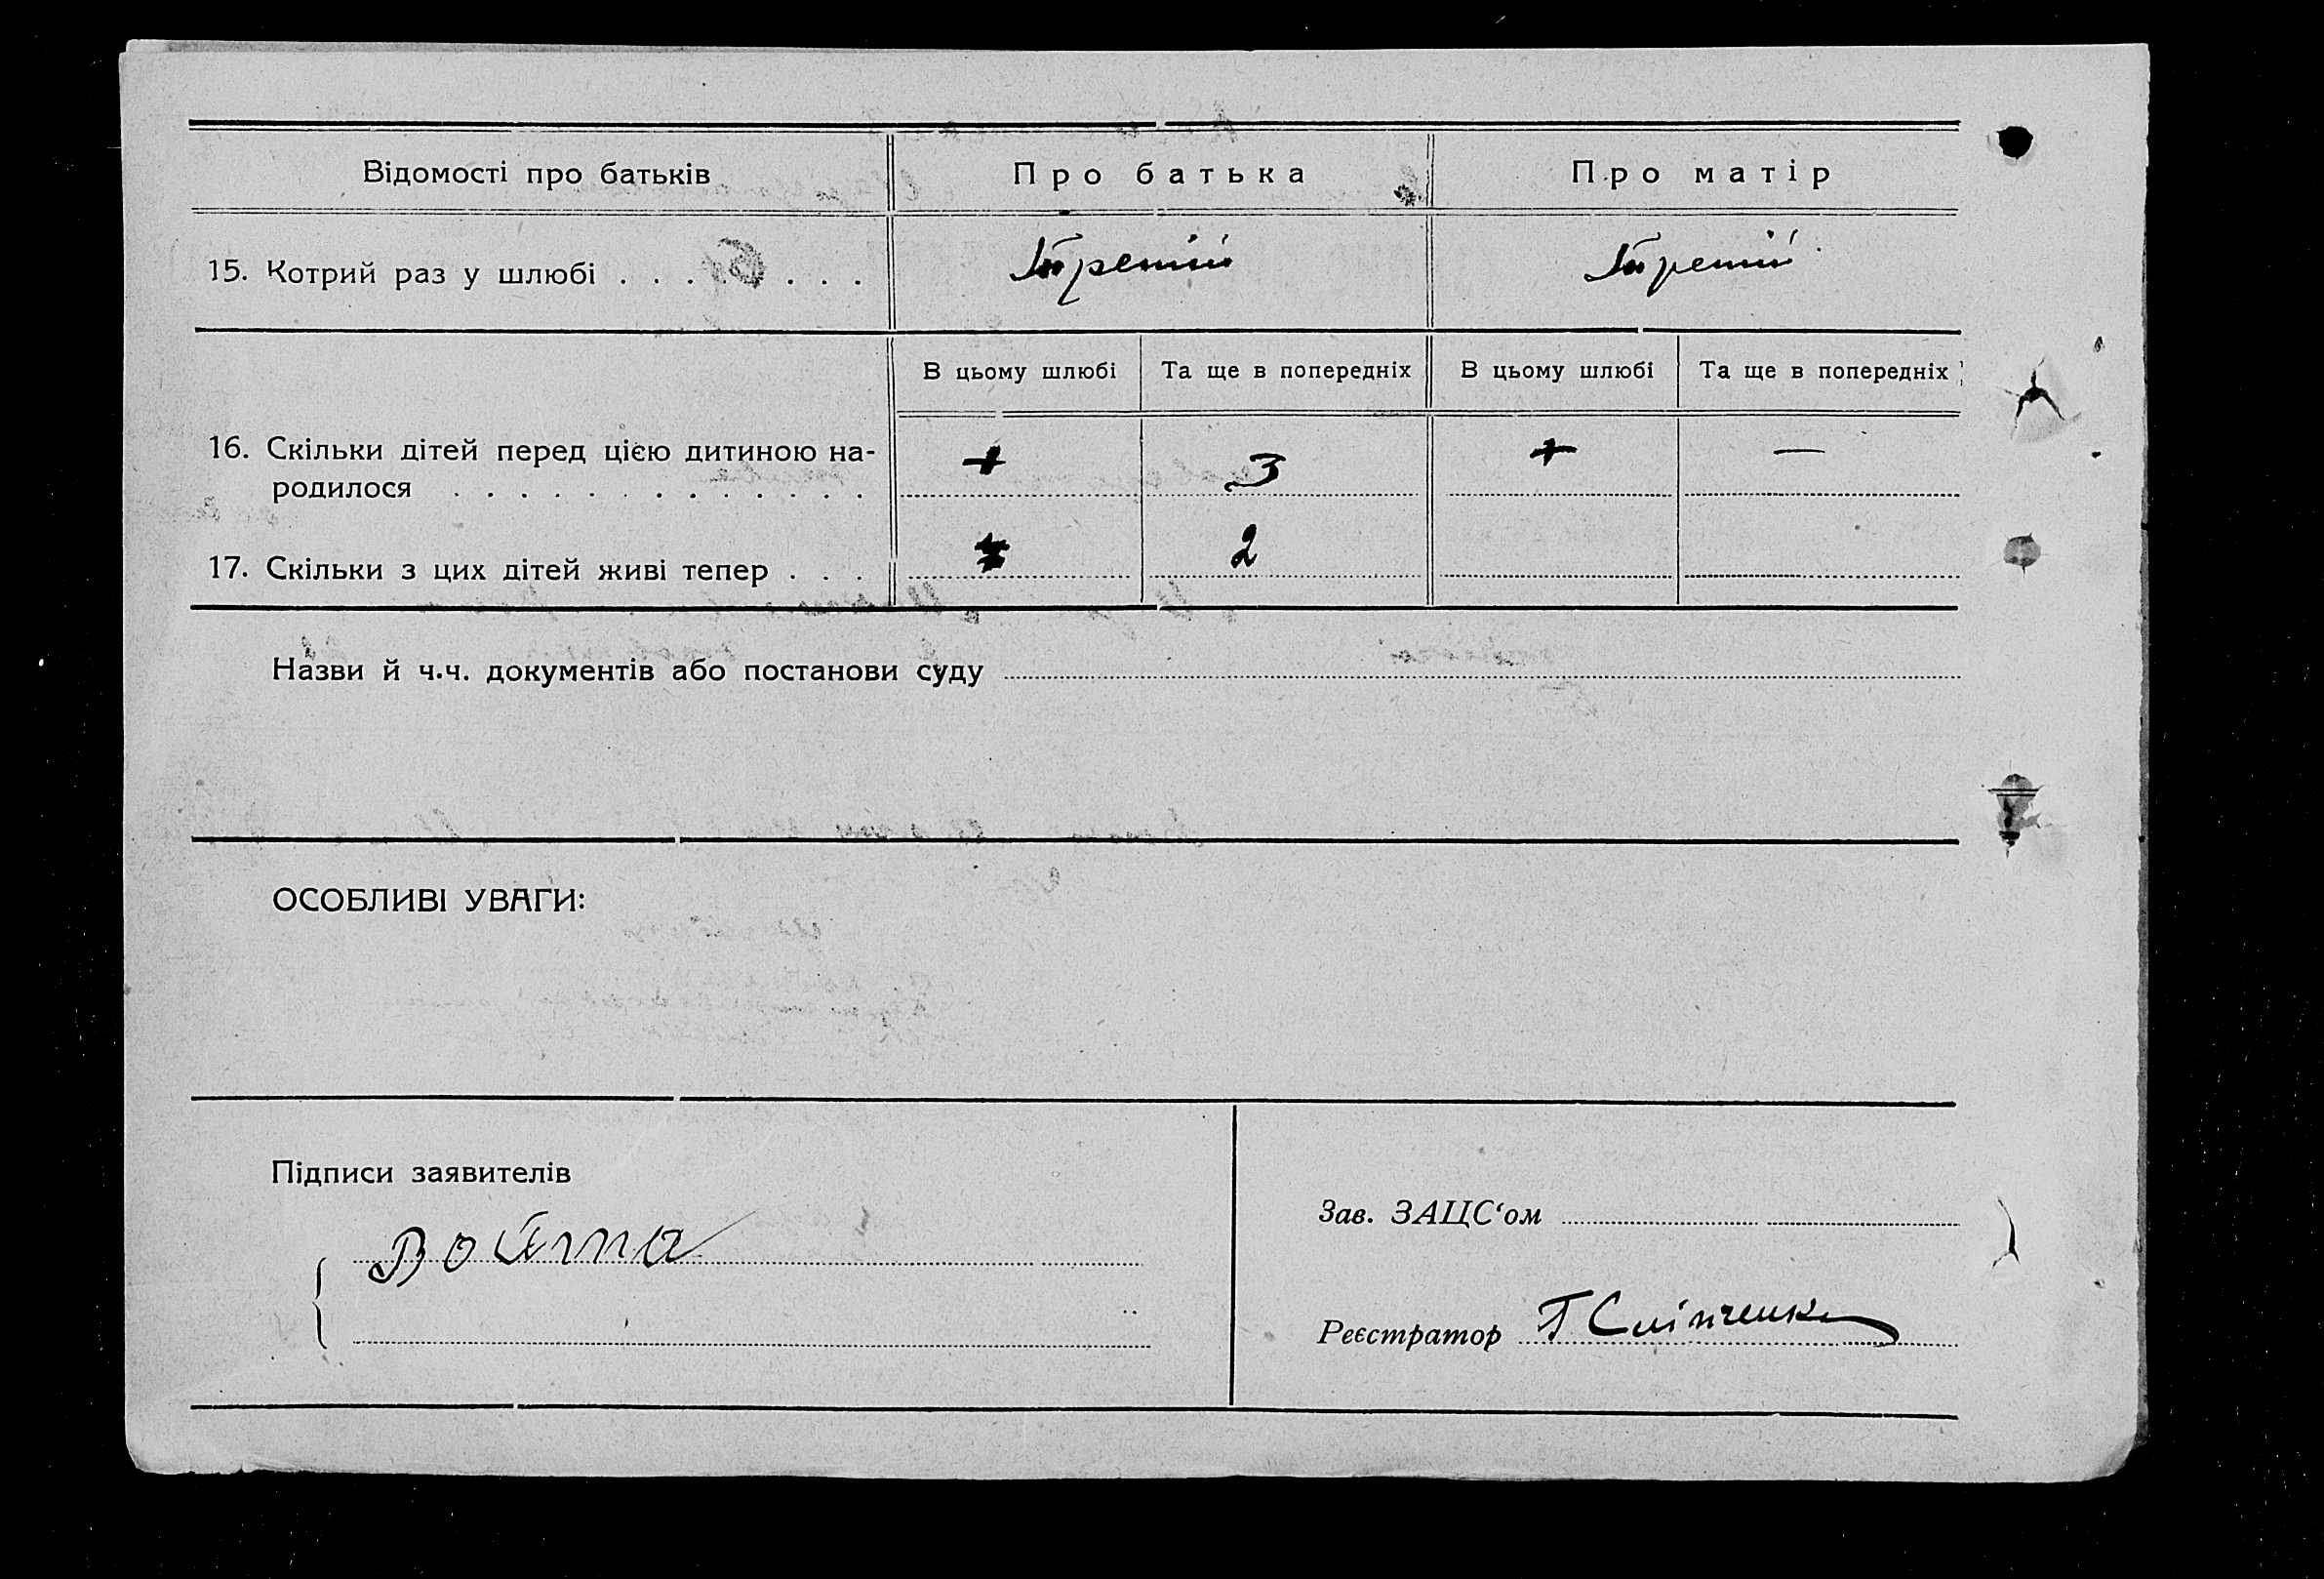 Відомості про батьків
Про батька
Про матір
15. Котрий раз у шлюбі . . . . . . . .
Третій
Третій
В цьому шлюбі
Та ще в попередніх
В цьому шлюбі
Та ще в попередніх
16. Скільки дітей перед цією дитиною на-
родилося . . . . . . . . . . . . .
+
3
+
—
17. Скільки з цих дітей живі тепер . . .
2
Назви й ч.ч. документів або постанови суду
ОСОБЛИВІ УВАГИ:
Підписи заявителів
Зав. ЗАЦС‘ом
Реєстратор